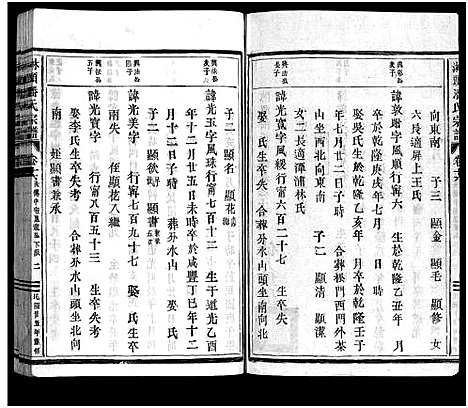 向東南 子三 顯金 顯毛 顯修 女
六長適屛上王氏
諱敦階字風順行寗六 生於乾隆乙丑年 月
卒於乾隆庚戌年七月 日 時
娶吳氏生於乾隆乙亥年 月 日 時卒於乾隆壬子
年七月廿二日子時 合葬松門西門外茶
山坐西北向東南 子二 顯清 顯潢
女二長適潭浦林氏
興法公長子
諱光寬字風緩行富六百二十七
娶 氏生卒失考 合葬外水山頭坐南向北
子二 顯名 顯花
興法公次子
諱光玉字風珠行富七百十三 生於道光乙酉
年十二月廿五日亥時卒於咸豐丁巳年十二
月十二日寅時 葬外水山 娶 氏
子二 顯欲 顯書
諱光美字 行富七百九十七 娶 氏生
卒失考 顯花入繼
興法公五子
諱光賣字 行富八百五十三 生卒失考
娶李氏生卒失考 合葬外水山頭坐北向
南 姪顯書兼承
淋頭潘氏宗譜 卷之六 二